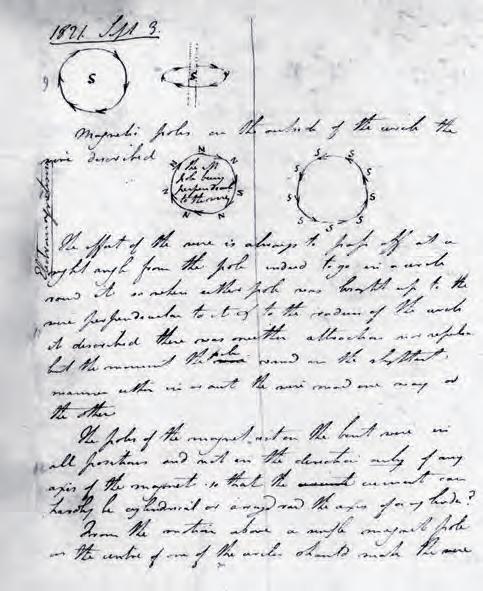 1821. Sept 3.
S
S
Magnetic poles on the outside of the circle the
wire described
N N S S N N
the M
pole being
perpendicular
to the ring
S S S S S S S S S
Electromagnetism
The effect of the wire is always to pass off at a
right angle from the pole indeed to go in a circle
round it so when either pole was brought up to the
wire perpendicular to it & to the radius of the circle
it described there was neither attraction nor repulsion
but the moment the pole varied in the slightest
manner either in or out the wire moved one way or
the other
The poles of the magnet act on the bent wire in
all positions and not in the direction only of any
axis of the magnet so that the current can
hardly be cylindrical or arranged round the axis of a cylinder?
From the motion above a single magnet pole
in the centre of one of the circles should make the wire